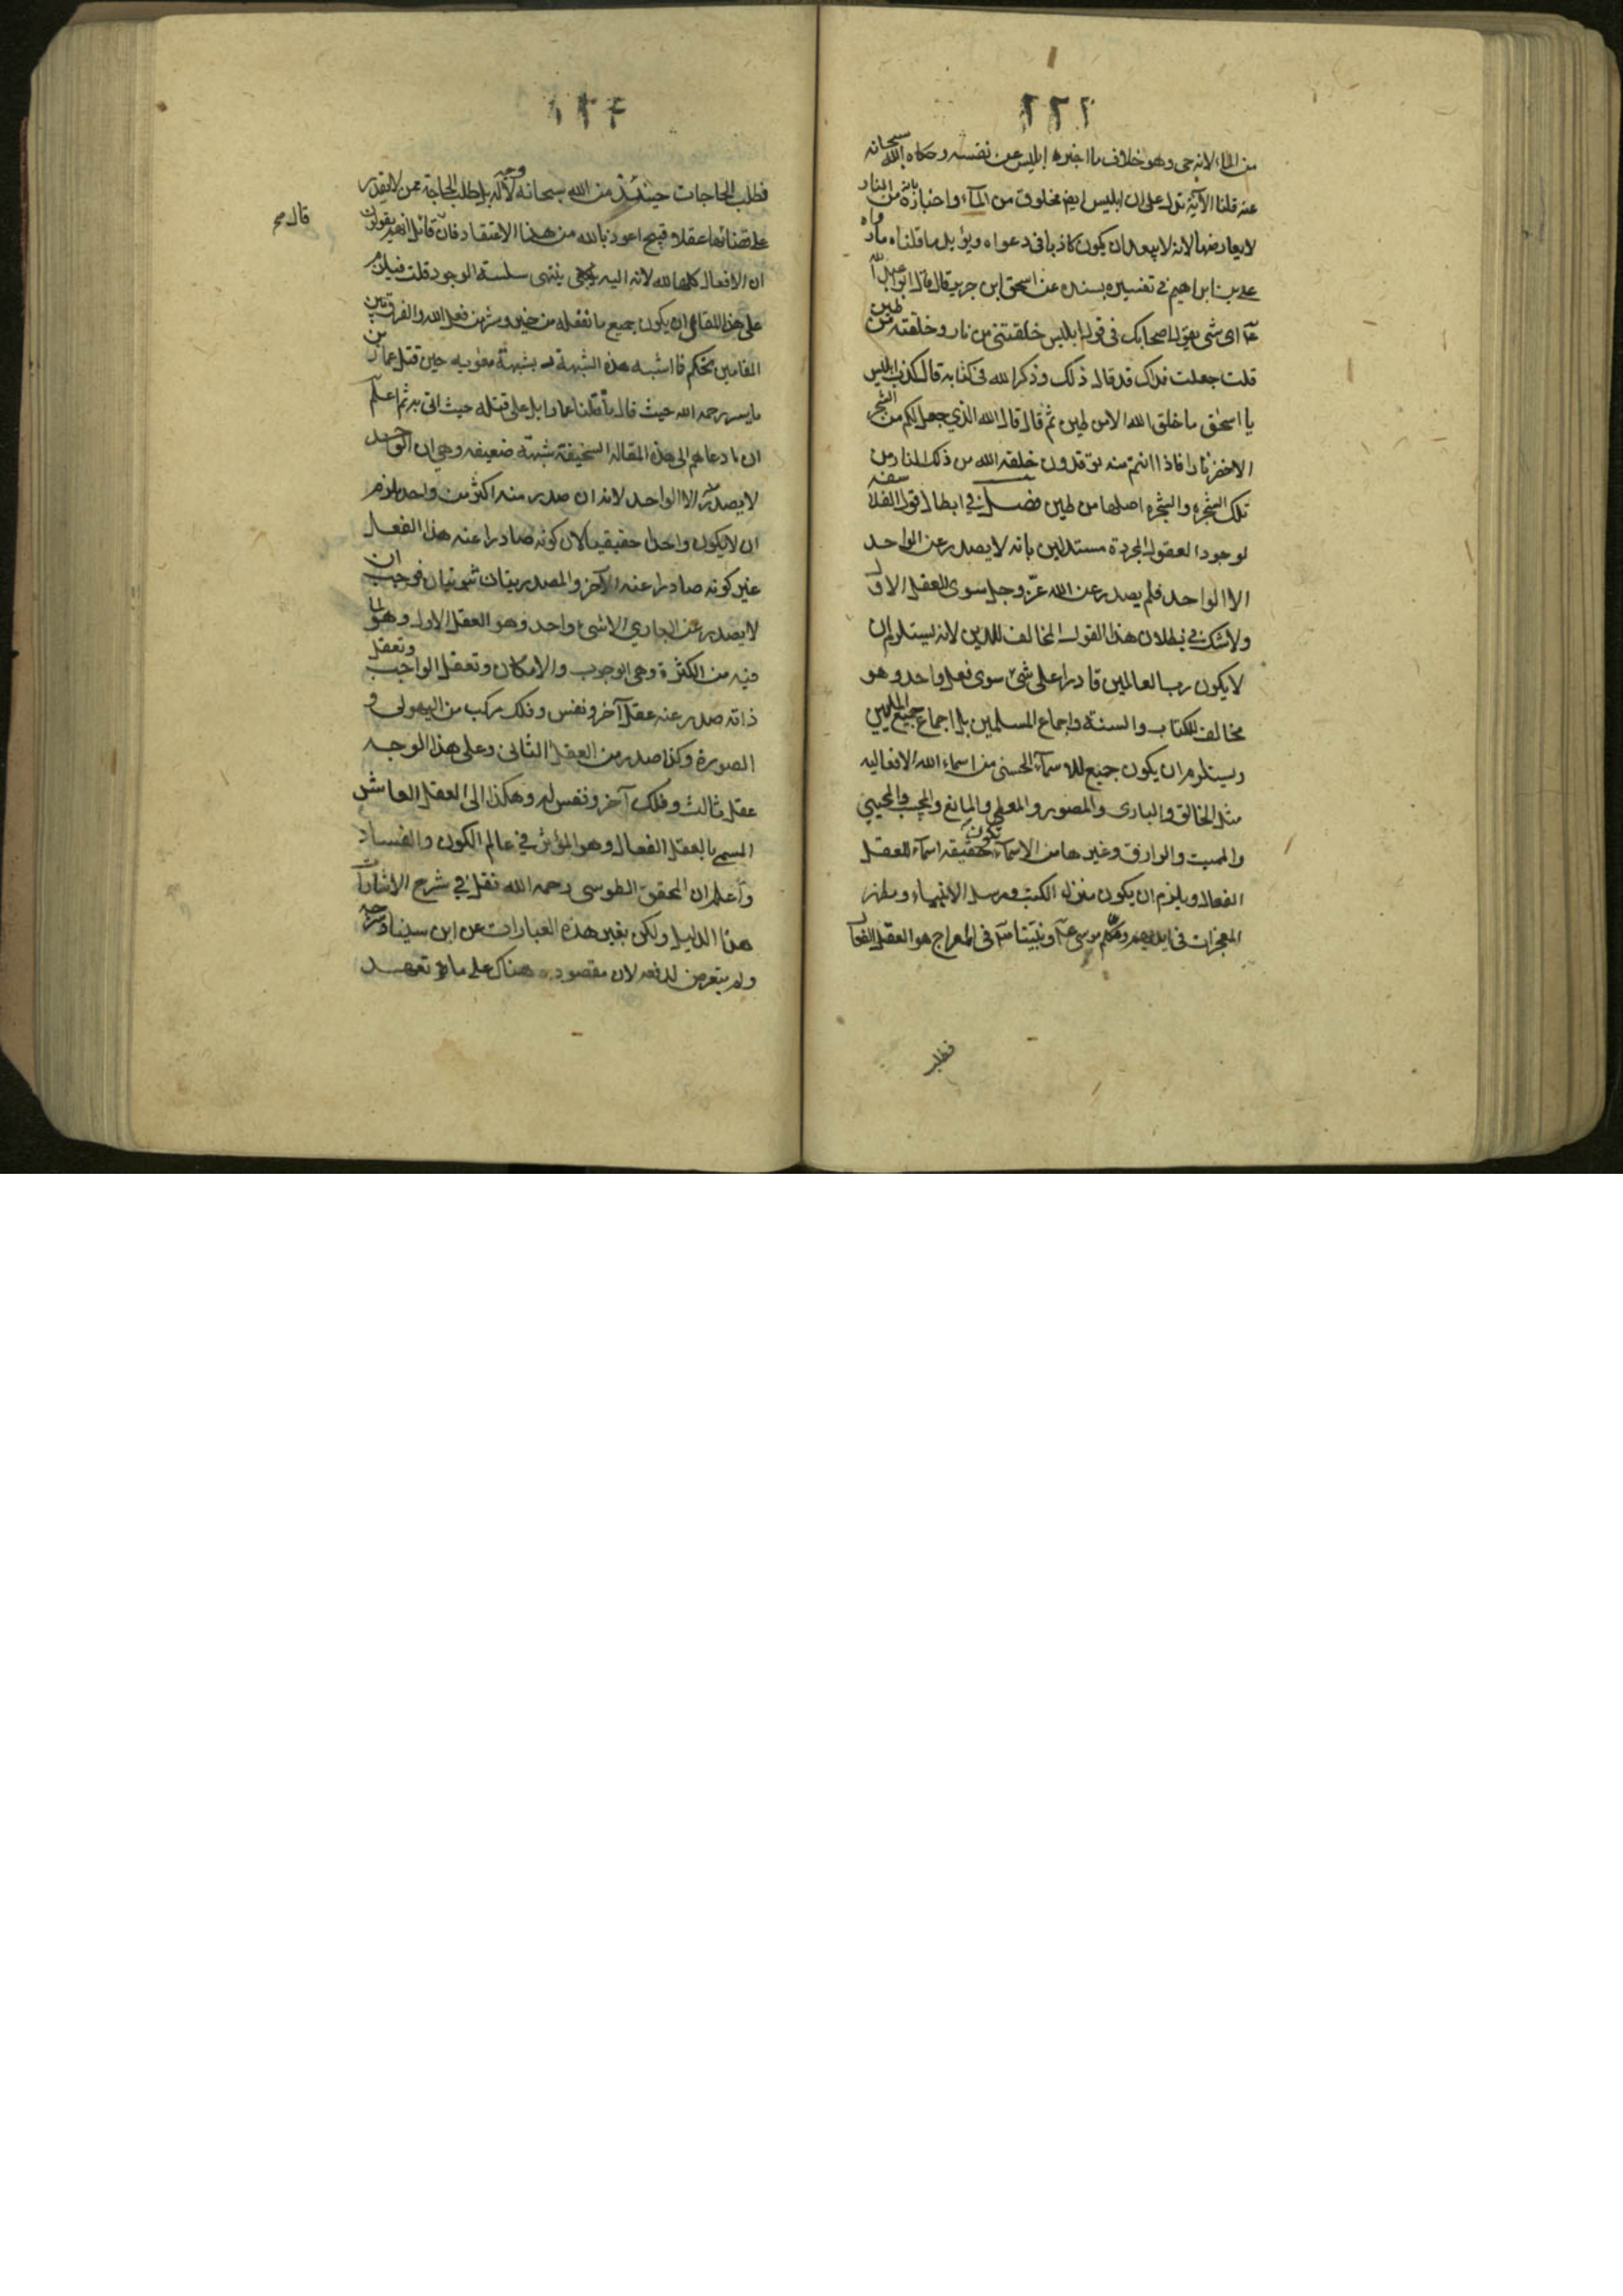 ٢٢٢
من الماء لانه حى وهو خلاف ما اخبره ابليس عن نفسه وحكاه الله سبحانه
عنه قلنا الآية تدل على ان ابليس ايضا مخلوق من المآء واخباره بانه من النار
لا يعارضها لانه لا يبعد ان يكون كاذبا فى دعواه ويؤيد ما قلناه ما رواه
على بن ابراهيم فى تفسيره بسنده عن اسحق ابن جرير قال قال ابو عبد الله
عآ اى شى يقول اصحابك فى قول ابليس خلقتنى من نار وخلقته من طين
قلت جعلت فداك قد قال ذلك وذكر الله فى كتابه قال كذب ابليس
يا اسحق ما خلق الله الا من طين ثم قال قال الله الذي جعل لكم من الشجر
الاخضر نارا فاذا انتم منه توقدون خلقه الله من ذلك النار ومن
تلك الشجره والشجره اصلها من طين فصل فى ابطال قول الفلاسفه
لوجود العقول المجردة مستدلين بانه لا يصدر عن الواحد
الا الواحد فلم يصدر عن الله عزّ وجل سوى العقل الاول
ولا شك فى بطلان هذا القول المخالف للدين لانه يستلزم ان
لا يكون رب العالمين قادرا على شئ سوى فعل واحد وهو
مخالف للكتاب والسنة واجماع المسلمين بل اجماع جميع المليين
ويستلزم ان يكون جميع للاسمآء الحسنى من اسماء الله الافعاليه
مثل الخالق والبارى والمصور والمعطى والمانع والمجيب والمحيى
والمميت والرازق وغيرها من الاسمآء تكون حقيقه اسمآء للعقل
الفعال ويلزم ان يكون منزل الكتب ومرسل الانبياء ومظهر
المعجزات فى ايديهم ومكلم موسى عآ ونبيّنا صآ فى المعراج هو العقل الفعال
فطلب
٢٢٣
فطلب الحاجات حينئذ من الله سبحانه لا وجه له بل طلب الحاجة ممن لا يقدر
على قضائها عقلا قبيح اعوذ بالله من هذا الاعتقاد فان قائل انهم يقولون
ان الافعال كلها لله لانه اليه ينتهى سلسلة الوجود قلت فيلزم
على هذا القائل ان يكون جميع ما نفعله من خير وشر من فعل الله والفرق بين
المقامين تحكم فما اشبه هذه الشبهة بشبهة معويه حين قتل عمار بن
ياسر رحمه الله حيث قال ما قتلنا عمارا بل على قتله حيث اتى به ثم اعلم
ان ما دعاهم الى هذه المقالة السخيفة شبهة ضعيفه وهى ان الواحد
لا يصدر منه الا الواحد لانه ان صدر منه اكثر من واحد يلزم
ان لا يكون واحدا حقيقيا لان كونه صادرا عنه هذا الفعل
غير كونه صادرا عنه الآخر والمصدريتان ثبوتيتان فوجب ان
لا يصدر عن الباري الا شئ واحد وهو العقل الاول وهو لما
فيه من الكثرة وهى الوجوب والامكان وتعقل الواجب وتعقل
ذاته صدر عنه عقل آخر ونفس وفلك مركب من الهيولى و
الصورة وكذا صدر من العقل الثانى وعلى هذا الوجه
عقل ثالث وفلك آخر ونفس له وهكذا الى العقل العاشر
المسمى بالعقل الفعال وهو المؤثر فى عالم الكون والفساد
واعلم ان المحقق الطوسى رحمه الله نقل فى شرح الاشارات
هذا الدليل ولكن بغير هذه العبارات عن ابن سينا وشرحه
ولم يتعرض لدفعه لان مقصوده هناك على ما تعهد
قال مح